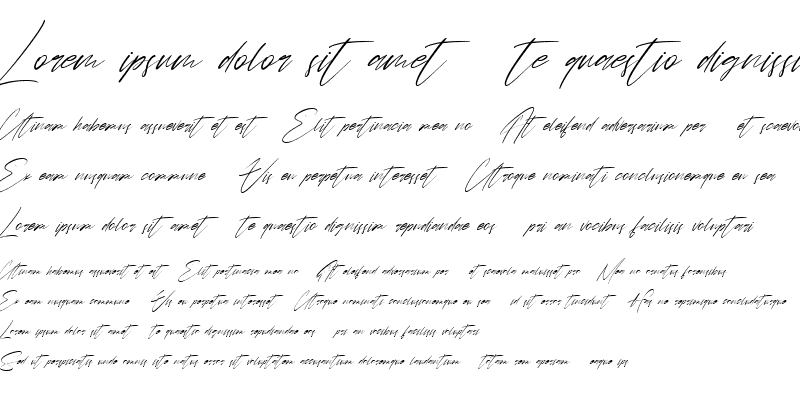 Lorem ipsum dolor sit amet te quaestio dignissi
Utinam habemus assueverit et est Elit pertinacia mea no At eleifend adversarium per et scaevol
Ex eam nusquam commune Vis eu perpetua interesset Utroque nominati conclusionemque eu sea
Lorem ipsum dolor sit amet te quaestio dignissim repudiandae eos pri an vocibus facilisis voluptari
Utinam habemus assueverit et est Elit pertinacia mea no At eleifend adversarium per et scaevola maluisset pro Mea ne ornatus forensibus
Ex eam nusquam commune Vis eu perpetua interesset Utroque nominati conclusionemque eu sea id sit esses tincidunt Has no saperemque concludaturque
Lorem ipsum dolor sit amet te quaestio dignissim repudiandae eos pri an vocibus facilisis voluptari
Sed ut perspiciatis unde omnis iste natus error sit voluptatem accusantium doloremque laudantium totam rem aperiam eaque ips